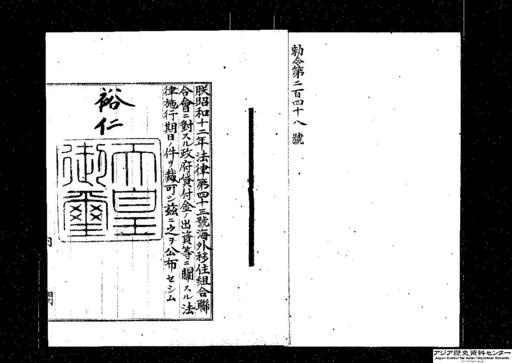 勅令第二百四十八號
朕昭和十二年法律第四十三號海外移住組合聯
合會ニ對スル政府貸付金ノ出資等ニ關スル法
律施行期日ノ件ヲ裁可シ茲ニ之ヲ公布セシム
裕仁
天皇
御璽
内閣
アジア歴史資料センター
Japan Center for Asian Historical Records